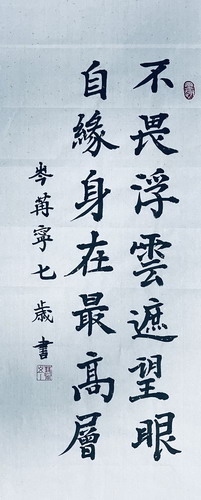 不畏浮雲遮望眼
自緣身在最高層
岑苒寧七歲書